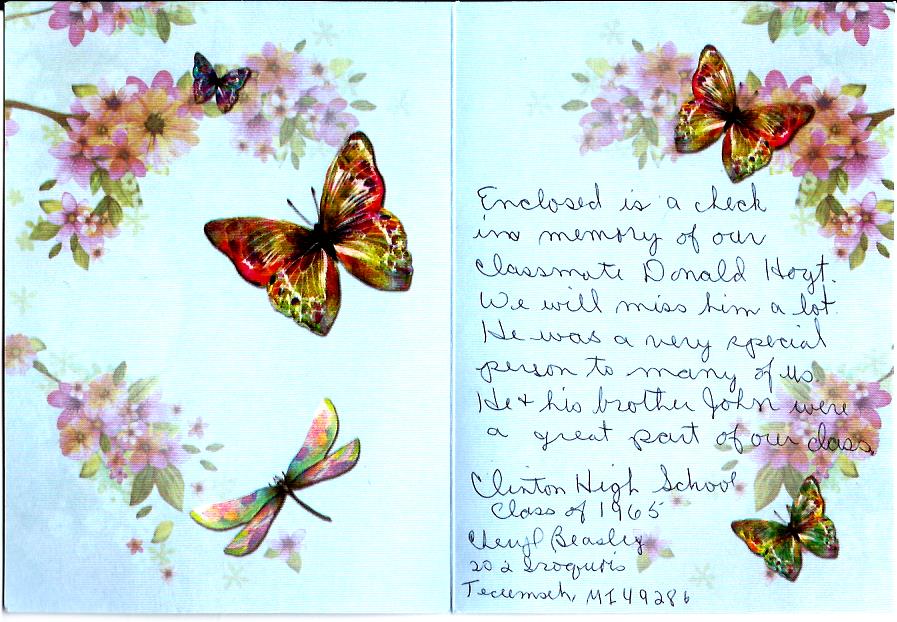 Enclosed is a check
in memory of our
classmate Donald Hoyt.
We will miss him a lot.
He was a very special
person to many of us.
He + his brother John were
a great part of our class.
Clinton High School
Class of 1965
Cheryl Beasley
202 Iroquois
Tecumseh, MI 49286